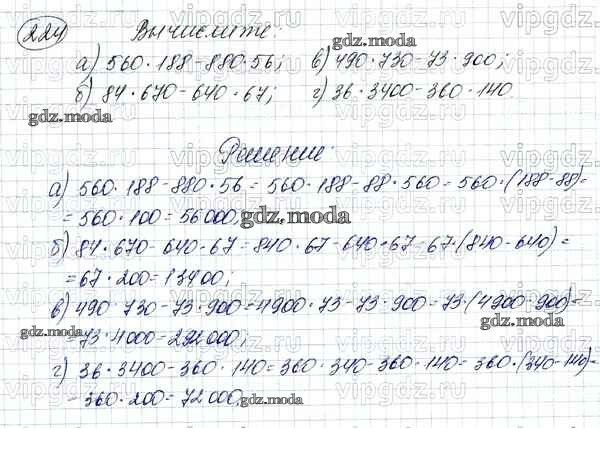 224 Вычислите:
а) 560·188-880·56; в) 490·730-73·900;
б) 84·670-640·67; г) 36·3400-360·140
Решение:
а) 560·188-880·56=560·188-88·560=560·(188-88)=
=560·100=56000;
б) 84·670-640·67=840·67-640·67=67·(840-640)=
=67·200=13400;
в) 490·730-73·900=4900·73-73·900=73·(4900-900)=
=73·4000=292000;
г) 36·3400-360·140=360·340-360·140=360·(340-140)=
=360·200=72000.
gdz.moda
vipgdz.ru